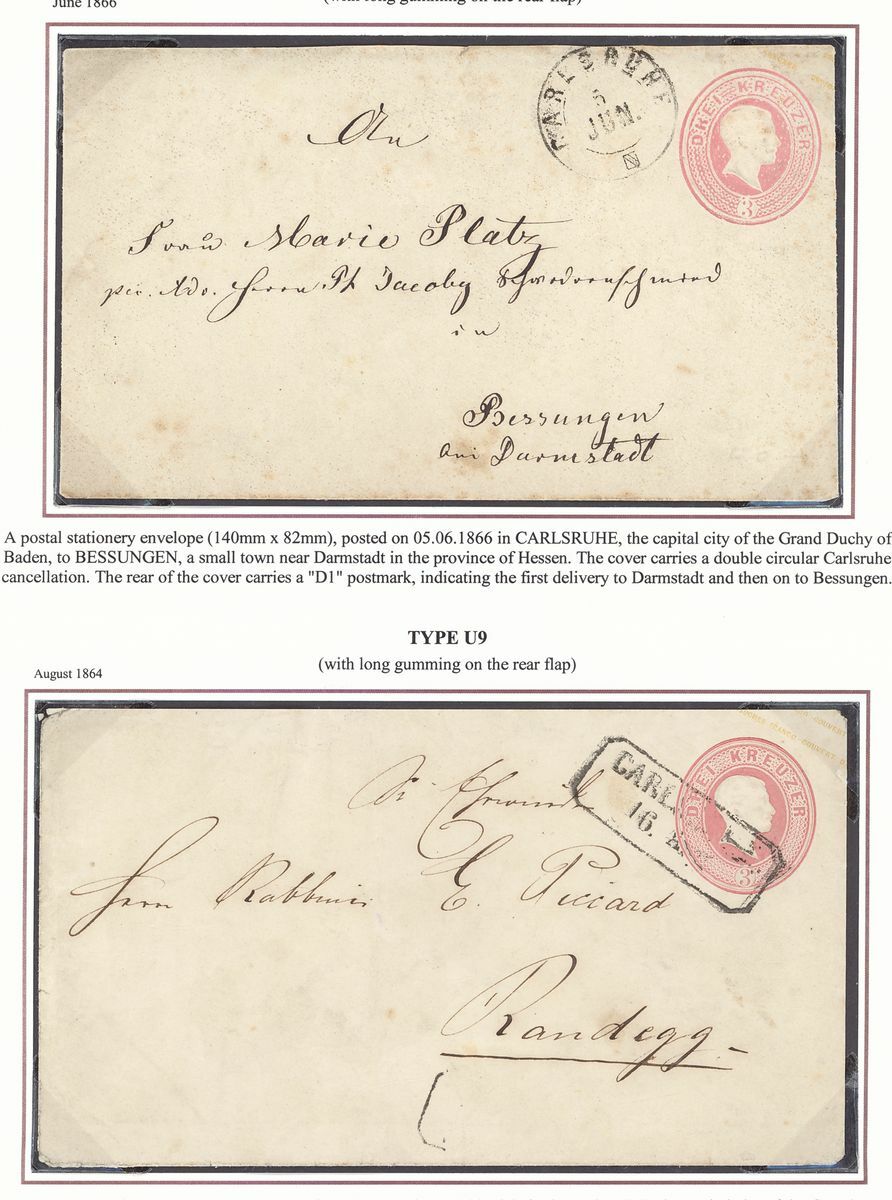 June 1866
(with long gumming on the rear flap)
CARLSRUHE
5
JUN.
DREI KREUZER
3
An
Frau Marie Platz
Herrn Ph Jacoby
in
Bessungen
bei Darmstadt
A postal stationery envelope (140mm x 82mm), posted on 05.06.1866 in CARLSRUHE, the capital city of the Grand Duchy of
Baden, to BESSUNGEN, a small town near Darmstadt in the province of Hessen. The cover carries a double circular Carlsruhe
cancellation. The rear of the cover carries a "D1" postmark, indicating the first delivery to Darmstadt and then on to Bessungen.
TYPE U9
(with long gumming on the rear flap)
August 1864
FRANCO-COUVERT
CARL
16. A
DREI KREUZER
3
Sr Ehrwürden
Herrn Rabbiner E. Piccard
Randegg